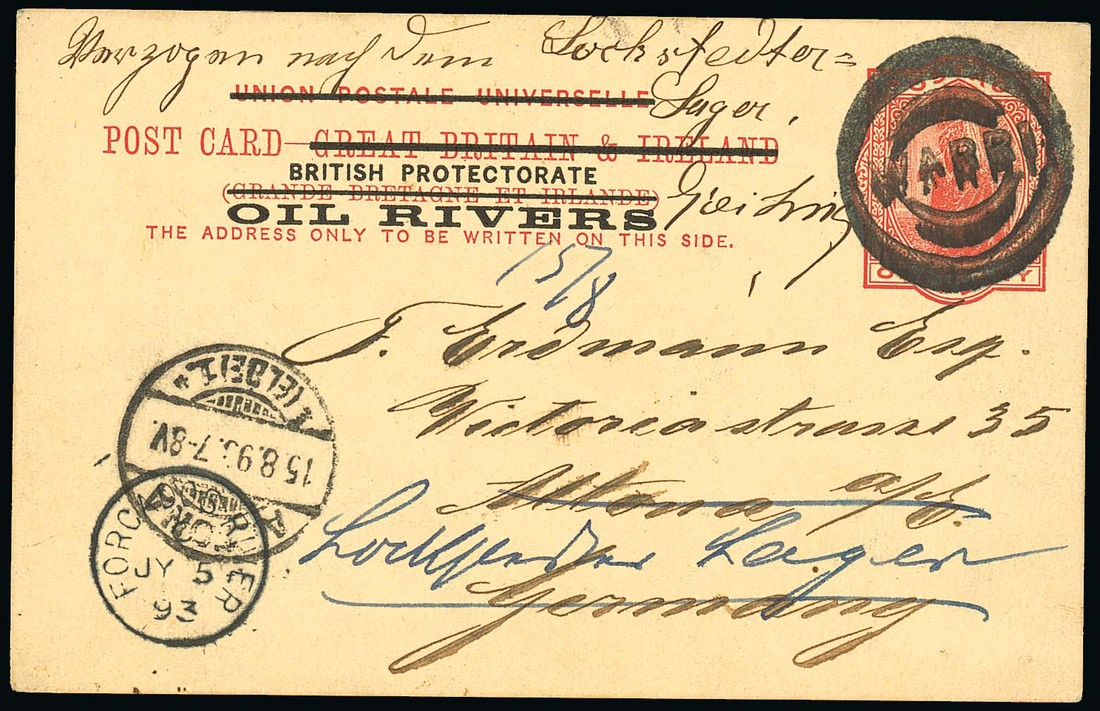 Verzogen nach dem Lockstedter=
Lager,
UNION POSTALE UNIVERSELLE
POST CARD — GREAT BRITAIN & IRELAND
BRITISH PROTECTORATE
(GRANDE BRETAGNE ET IRLANDE)
OIL RIVERS
THE ADDRESS ONLY TO BE WRITTEN ON THIS SIDE.
WARRI
15/8
F. Erdmann Esq.
Victoriastrasse 35
Altona a/E.
Lockstedter Lager
Germany
(ELBE) 1.
15.8.93. 7-8V.
FORCADOS RIVER
JY 5
93